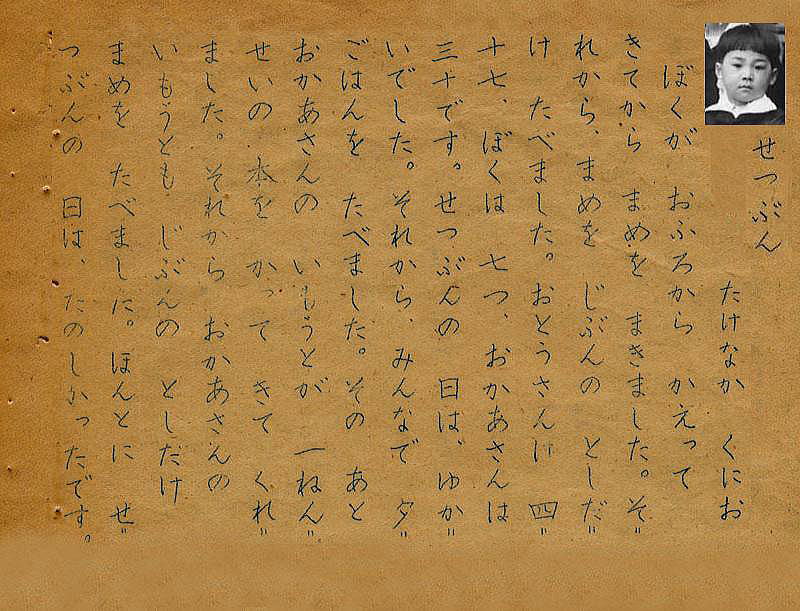 せつぶん
たけなか くにお
ぼくが おふろから かえって
きてから まめを まきました。そ〃
れから、まめを じぶんの としだ〃
け たべました。おとうさんは 四〃
十七、ぼくは 七つ、おかあさんは
三十です。せつぶんの 日は、ゆか〃
いでした。それから、みんなで 夕〃
ごはんを たべました。その あと
おかあさんの いもうとが 一ねん〃
せいの 本を かって きて くれ〃
ました。それから おかあさんの
いもうとも じぶんの としだけ
まめを たべました。ほんとに せ〃
つぶんの 日は、たのしかったです。